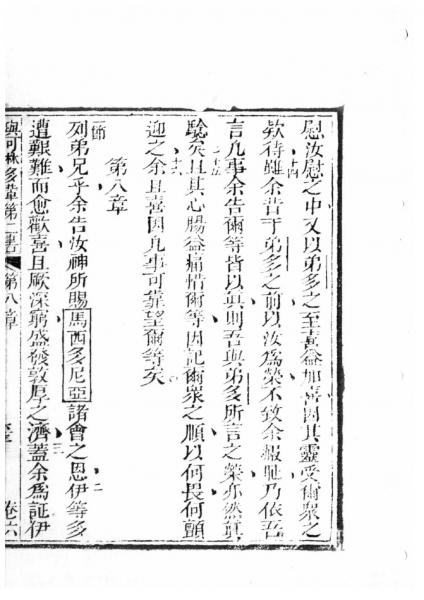 慰汝慰之中又以弟多之至喜益加喜因其靈受爾衆之
欵待雖余昔于弟多之前以汝爲榮不致余報耻乃依吾
十四
言凡事余告爾等皆以眞則吾與弟多所言之榮亦然眞
十五
騐矣且其心腸益痛惜爾等因記爾衆之順以何畏何顫
十六
迎之余且喜因凡事可靠望爾等矣
第八章
一節
列弟兄乎余告汝神所賜馬西多尼亞諸會之恩伊等多
二
遭艱難而愈歡喜且厥深窮盛發敦厚之濟蓋余爲証伊
三
與可林多輩第二書 第八章 卷六